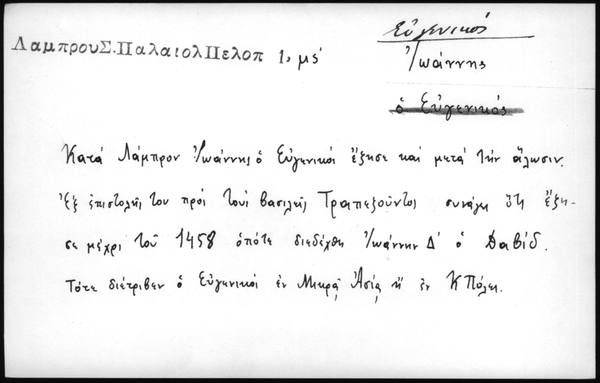 Εὐγενικός
ΛαμπρουΣ.ΠαλαιολΠελοπ 1, μς΄
Ἰωάννης
ὁ Εὐγενικός
Κατά Λάμπρον Ἰωάννης ὁ Εὐγενικός ἔζησε καί μετά τήν ἅλωσιν.
Ἐξ ἐπιστολῆς του πρός τούς βασιλεῖς Τραπεζοῦντος συνάγει ὅτι ἔζη-
σε μέχρι τοῦ 1458 ὁπότε διεδέχθη Ἰωάννην Δ΄ ὁ Δαβίδ.
Τότε διέτριβεν ὁ Εὐγενικός ἐν Μικρᾷ Ἀσίᾳ ἤ ἐν ΚΠόλει.